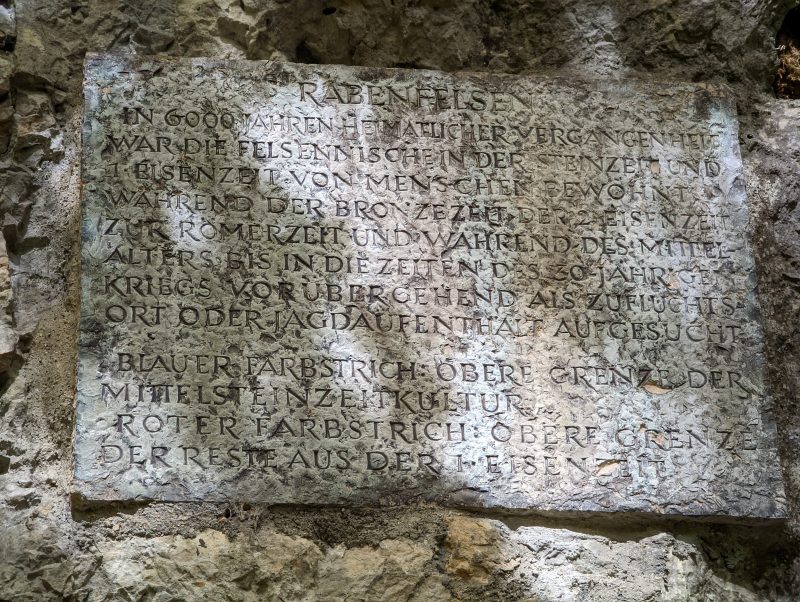 RABENFELSEN
IN 6000 JAHREN HEIMATLICHER VERGANGENHEIT
WAR DIE FELSENNISCHE IN DER STEINZEIT UND
1. EISENZEIT VON MENSCHEN BEWOHNT
WÄHREND DER BRONZEZEIT, DER 2. EISENZEIT
ZUR RÖMERZEIT UND WÄHREND DES MITTEL-
ALTERS BIS IN DIE ZEITEN DES 30 JÄHRIGE
KRIEGS VORÜBERGEHEND ALS ZUFLUCHTS-
ORT ODER JAGDAUFENTHALT AUFGESUCHT
BLAUER FARBSTRICH: OBERE GRENZE DER
MITTELSTEINZEITKULTUR
ROTER FARBSTRICH: OBERE GRENZE
DER RESTE AUS DER 1. EISENZEIT